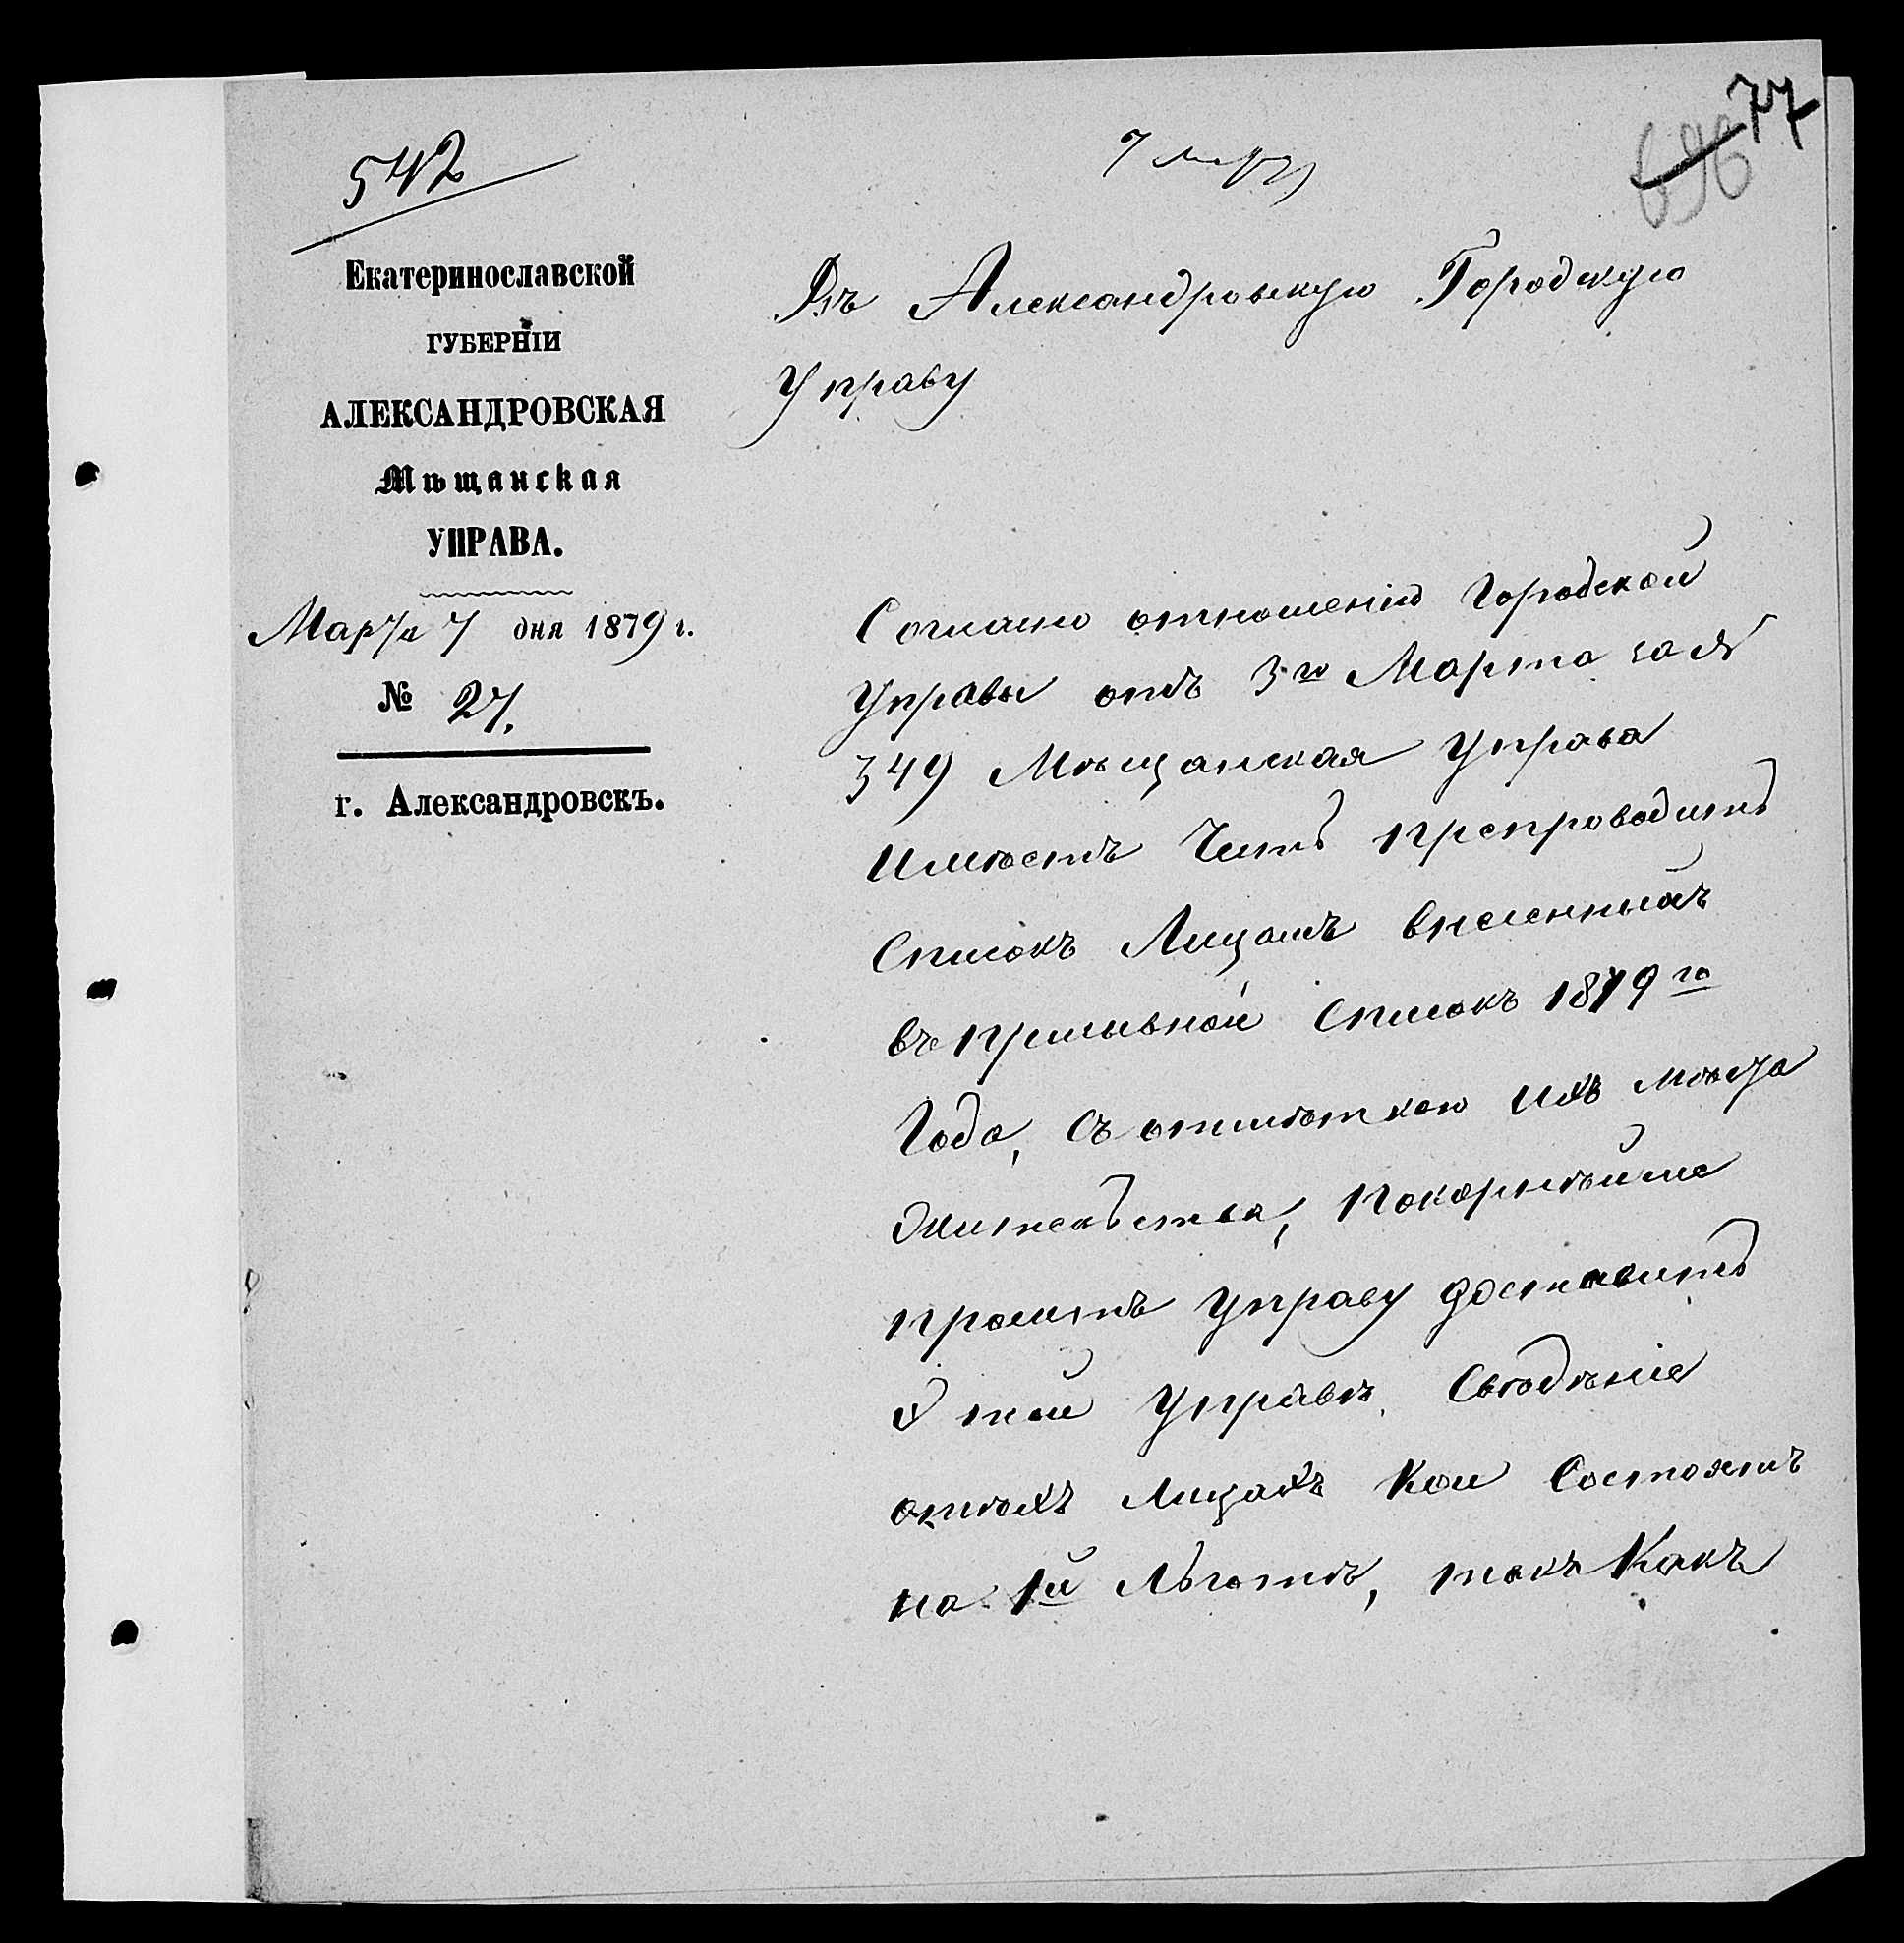 542
7 марта
696
77
Екатеринославской
ГУБЕРНІИ
АЛЕКСАНДРОВСКАЯ
Мѣщанская
УПРАВА.
Марта 7 дня 1879 г.
№ 27.
г. Александровскъ.
Въ Александровскую Городскую
Управу
Согласно отношенію Городской
Управы отъ 3го Марта за №
349 Мѣщанская Управа
имѣетъ Честь препроводить
Списокъ Лицамъ внесеннымъ
въ призывной Списокъ 1879го
Года, съ отмѣткою ихъ мѣста
жительства, Покорнѣйше
проситъ Управу доставить
этой Управѣ Свѣдѣніе
отѣхъ лицахъ Кои Состоятъ
на 1й Льготѣ, такъ Какъ